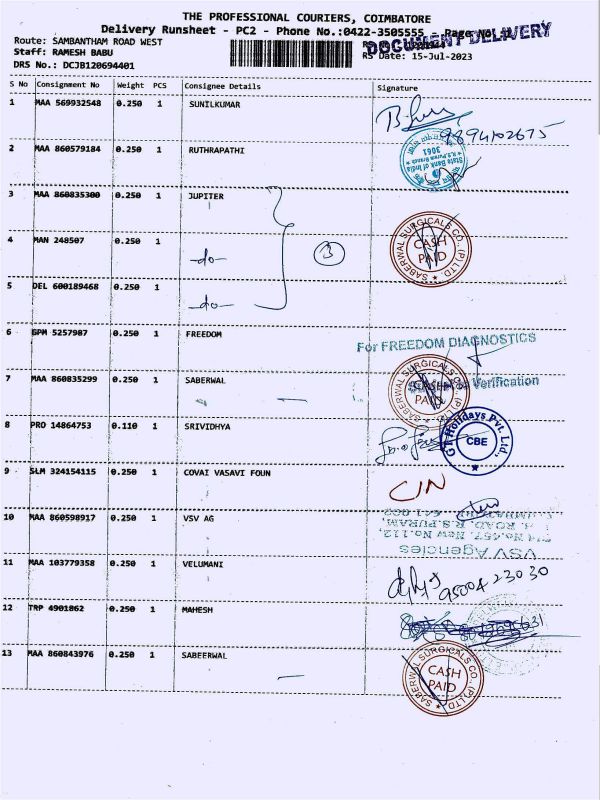 THE PROFESSIONAL COURIERS, COIMBATORE
Delivery Runsheet - PC2 - Phone No.:0422-3505555 - Page No.
DOCUMENT DELIVERY
Route: SAMBANTHAM ROAD WEST
Staff: RAMESH BABU
RS Date: 15-Jul-2023
DRS No.: DCJB120694401
S No Consignment No Weight PCS Consignee Details Signature
1 MAA 569932548 0.250 1 SUNILKUMAR
9894102675
2 MAA 860579184 0.250 1 RUTHRAPATHI
State Bank of India
3061
3 MAA 860835300 0.250 1 JUPITER
4 MAN 248507 0.250 1 -do- 3
SABERWAL SURGICALS CO., (P) LTD.
CASH
PAID
5 DEL 600189468 0.250 1 -do-
6 GPM 5257987 0.250 1 FREEDOM
For FREEDOM DIAGNOSTICS
7 MAA 860835299 0.250 1 SABERWAL
Verification
SABERWAL SURGICALS CO., (P) LTD.
PAID
8 PRO 14864753 0.110 1 SRIVIDHYA
GT Holidays Pvt. Ltd.,
CBE
9 SLM 324154115 0.250 1 COVAI VASAVI FOUN
C/N
10 MAA 860598917 0.250 1 VSV AG
641 002
ROAD, R.S.PURAM,
No.457, New No.112,
VSV Agencies
11 MAA 103779358 0.250 1 VELUMANI
95004 23030
12 TRP 4901862 0.250 1 MAHESH
13 MAA 860843976 0.250 1 SABEERWAL
SABERWAL SURGICALS CO., (P) LTD.
CASH
PAID